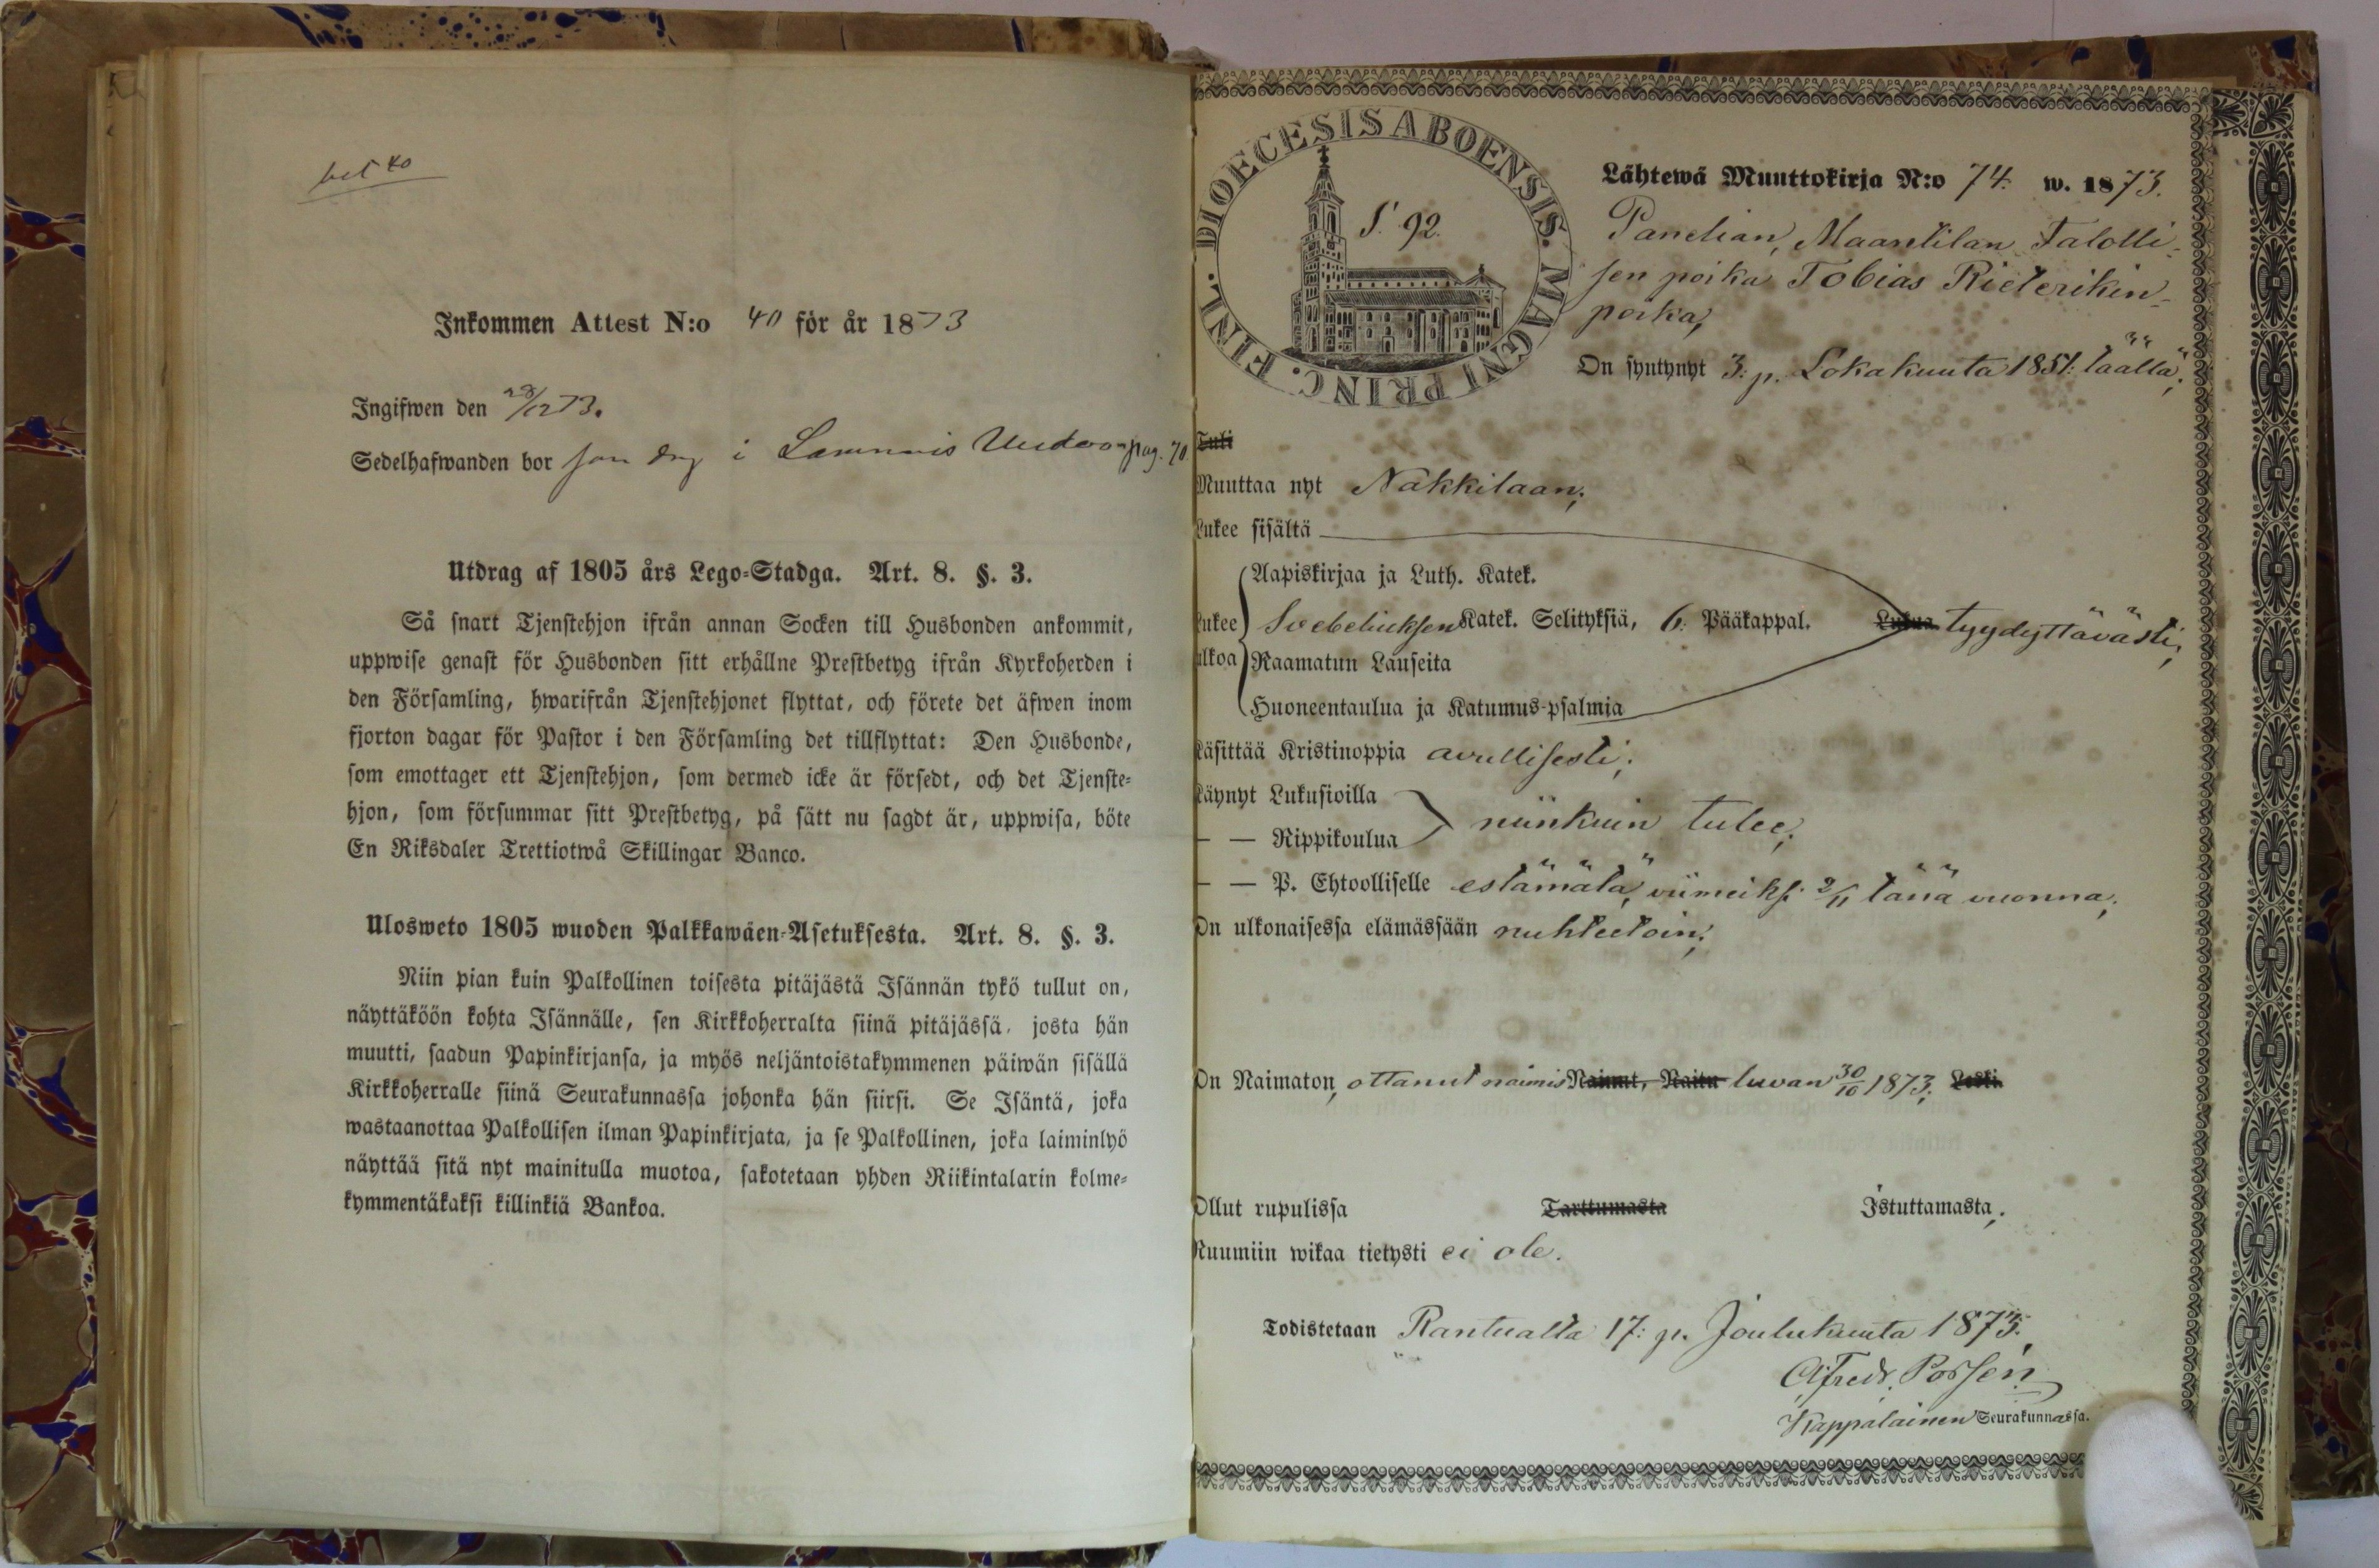 bil 40
Inkommen Attest N:o 40 för år 1873
Ingifwen den 28/12 73.
Sedelhafwanden bor som drg i Lammais pag. 70
Utdrag af 1805 års Lego-Stadga. Art. 8. §. 3.
Så snart Tjenstehjon ifrån annan Socken till Husbonden ankommit,
uppwise genast för Husbonden sitt erhållne Prestbetyg ifrån Kyrkoherden i
den Församling, hwarifrån Tjenstehjonet flyttat, och förete det äfwen inom
fjorton dagar för Pastor i den Församling det tillflyttat: Den Husbonde,
som emottager ett Tjenstehjon, som dermed icke är försedt, och det Tjenste-
hjon, som försummar sitt Prestbetyg, på sätt nu sagdt är, uppwisa, böte
En Riksdaler Trettiotwå Skillingar Banco.
Ulosweto 1805 wuoden Palkkawäen-Asetuksesta. Art. 8. §. 3.
Niin pian kuin Palkollinen toisesta pitäjästä Isännän tykö tullut on,
näyttäköön kohta Isännälle, sen Kirkkoherralta siinä pitäjässä, josta hän
muutti, saadun Papinkirjansa, ja myös neljäntoistakymmenen päiwän sisällä
Kirkkoherralle siinä Seurakunnassa johonka hän siirsi. Se Isäntä, joka
wastaanottaa Palkollisen ilman Papinkirjata, ja se Palkollinen, joka laiminlyö
näyttää sitä nyt mainitulla muotoa, sakotetaan yhden Riikintalarin kolme-
kymmentäkaksi killinkiä Bankoa.
DIOECESIS ABOENSIS. MAGNI PRINC. FINL.
S. 92.
Lähtewä Muuttokirja N:o 74. w. 1873.
Panelian, Maantilan Talolli-
sen poika Tobias Rieterikin-
poika,
On syntynyt 3: p. Lokakuuta 1851: täällä;
Tuli
Muuttaa nyt Nakkilaan;
Lukee sisältä
Aapiskirjaa ja Luth. Katek.
Lukee Svebeliuksen Katek. Selityksiä, 6: Pääkappal. Lukua tyydyttävästi;
ulkoa Raamatun Lauseita
Huoneentaulua ja Katumus-psalmia
Käsittää Kristinoppia avullisesti;
Käynyt Lukusioilla
— — Rippikoulua niinkuin tulee;
— — P. Ehtoolliselle estämätä, viimeiks. 2/11 tänä vuonna;
On ulkonaisessa elämässään nuhteetoin;
On Naimaton, ottanut naimis Nainut, Naitu luvan 30/10 1873; Leski
Ollut rupulissa Tarttumasta Istuttamasta;
Ruumiin wikaa tietysti ei ole.
Todistetaan Kantualta 17: p. Joulukuuta 1873.
Alfred. Possén
Kappalainen Seurakunnassa.